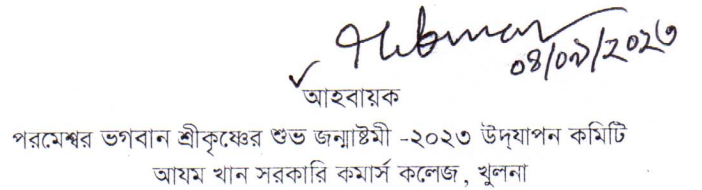 ০৪/০৯/২০২৩
আহবায়ক
পরমেশ্বর ভগবান শ্রীকৃষ্ণের শুভ জন্মাষ্টমী -২০২৩ উদ্‌যাপন কমিটি
আযম খান সরকারি কমার্স কলেজ, খুলনা